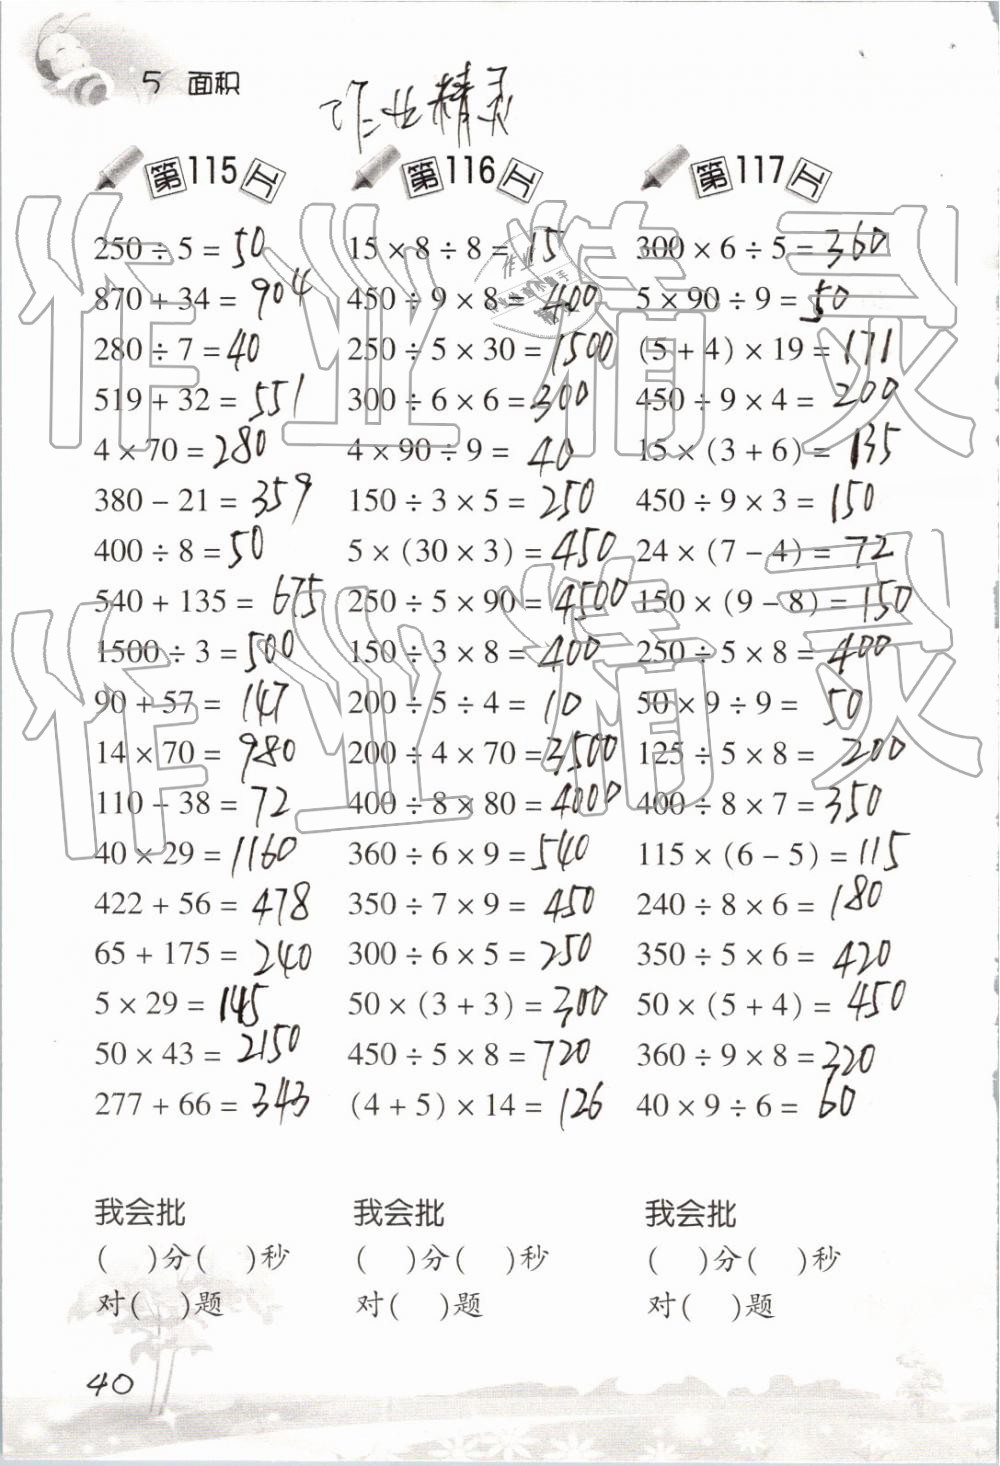 5 面积
作业精灵
第115页
250÷5=50
870+34=904
280÷7=40
519+32=551
4×70=280
380-21=359
400÷8=50
540+135=675
1500÷3=500
90+57=147
14×70=980
110-38=72
40×29=1160
422+56=478
65+175=240
5×29=145
50×43=2150
277+66=343
我会批
( )分( )秒
对( )题
第116页
15×8÷8=15
450÷9×8=400
250÷5×30=1500
300÷6×6=300
4×90÷9=40
150÷3×5=250
5×(30×3)=450
250÷5×90=4500
150÷3×8=400
200÷5÷4=10
200÷4×70=3500
400÷8×80=4000
360÷6×9=540
350÷7×9=450
300÷6×5=250
50×(3+3)=300
450÷5×8=720
(4+5)×14=126
我会批
( )分( )秒
对( )题
第117页
300×6÷5=360
5×90÷9=50
(5+4)×19=171
450÷9×4=200
15×(3+6)=135
450÷9×3=150
24×(7-4)=72
150×(9-8)=150
250÷5×8=400
50×9÷9=50
125÷5×8=200
400÷8×7=350
115×(6-5)=115
240÷8×6=180
350÷5×6=420
50×(5+4)=450
360÷9×8=320
40×9÷6=60
我会批
( )分( )秒
对( )题
40
作业精灵
作业精灵